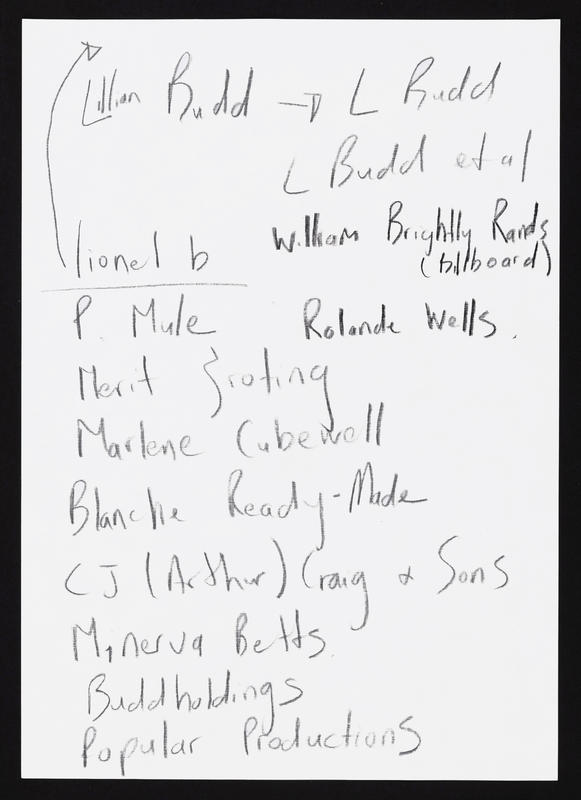 Lillian Budd → L Budd
L Budd et al
William Brightly Rands
(billboard)
lionel b
P. Mule
Rolande Wells.
Merit
Marlene Cubewell
Blanche Ready-Made
CJ (Arthur) Craig & Sons
Minerva Betts.
Buddholdings
Popular Productions